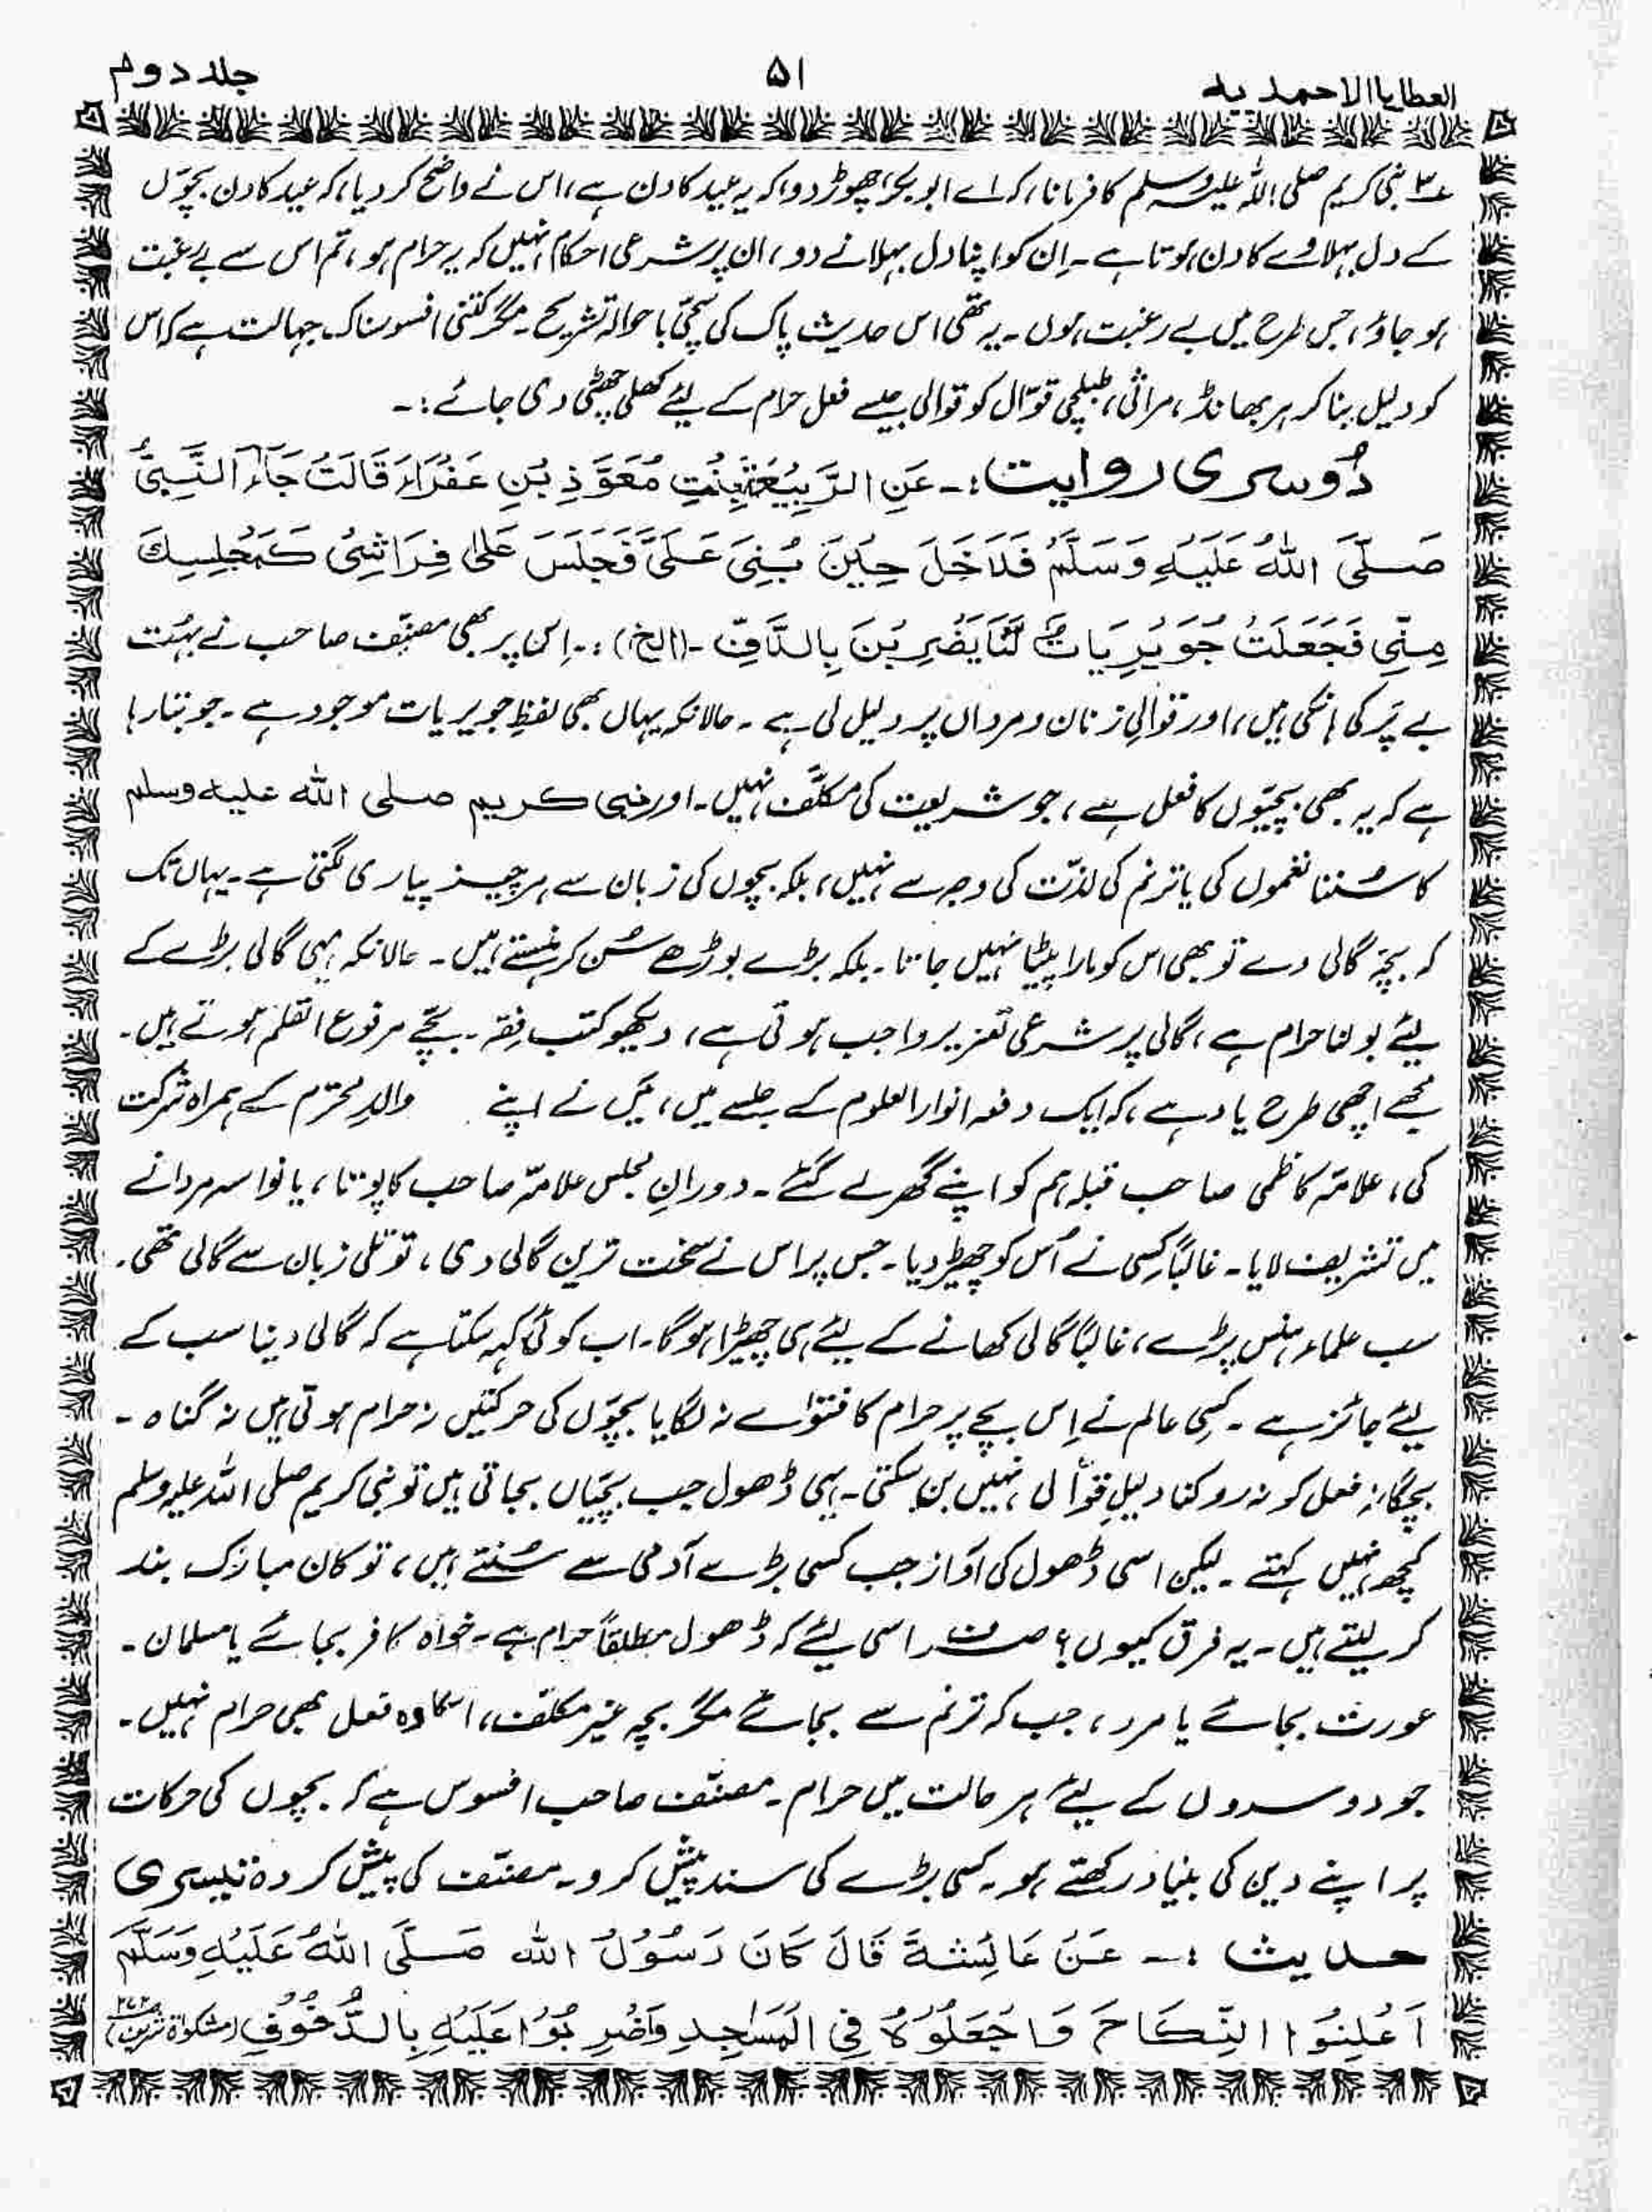 العطایا الاحمدیہ
۵۱
جلد دوم
۳؎ نبی کریم صلی اللہ علیہ وسلم کا فرمانا، کہ اے ابوبکر، چھوڑ دو، کہ یہ عید کا دن ہے، اس نے واضح کر دیا، کہ عید کا دن بچّوں
کے دل بہلاوے کا دن ہوتا ہے۔ اِن کو اپنا دل بہلانے دو، ان پر شرعی احکام نہیں کہ یہ حرام ہو، تم اس سے بے رغبت
ہو جاؤ، جس طرح میں بے رغبت ہوں۔ یہ تھی اس حدیث پاک کی سچّی باحوالہ تشریح۔ مگر کتنی افسوسناک جہالت ہے کہ اس
کو دلیل بنا کر ہر بھانڈ، مراثی، طبلچی قوّال کو قوالی جیسے فعل حرام کے لیئے کھلی چھٹی دی جائے:۔
دُوسری روایت:۔ عَنِ الرَّبِيْعَةِ بِنْتِ مُعَوَّذِ بْنِ عَفْرَاءَ قَالَتْ جَاءَ النَّبِيُّ
صَلَّى اللهُ عَلَيْهِ وَسَلَّمَ فَدَخَلَ حِيْنَ بُنِىَ عَلَىَّ فَجَلَسَ عَلىٰ فِرَاشِىْ كَمَجْلِسِكَ
مِنِّي فَجَعَلَتْ جُوَيْرِيَاتٌ لَّنَا يَضْرِبْنَ بِالدَّفِّ ۔(الخ):۔ اِس پر بھی مصنّف صاحب نے بہُت
بے پَر کی ہانکی ہیں، اور قوالیِ زنان و مرداں پر دلیل لی ہے۔ حالانکہ یہاں بھی لفظِ جویریات موجود ہے۔ جو بتا رہا
ہے کہ یہ بھی بچّیوں کا فعل ہے، جو شریعت کی مکلَّف نہیں۔ اور نبی کریم صلی اللہ علیہ وسلم
کا سُننا نغموں کی یا ترنم کی لذّت کی وجہ سے نہیں، بلکہ بچوں کی زبان سے ہر چیز پیاری لگتی ہے۔ یہاں تک
کہ بچّہ گالی دے تو بھی اس کو مارا پیٹا نہیں جاتا۔ بلکہ بڑے بوڑھے سُن کر ہنستے ہیں۔ حالانکہ یہی گالی بڑے کے
لیئے بولنا حرام ہے، گالی پر شرعی تعزیر واجب ہوتی ہے، دیکھو کتب فِقہ۔ بچّے مرفوع القلم ہوتے ہیں۔
مجھے اچھی طرح یاد ہے، کہ ایک دفعہ انوار العلوم کے جلسے میں، مَیں نے اپنے والدِ محترم کے ہمراہ شرکت
کی، علامّہ کاظمی صاحب قبلہ ہم کو اپنے گھر لے گئے۔ دورانِ مجلس علامّہ صاحب کا پوتا، یا نواسہ مردانے
میں تشریف لایا۔ غالباً کِسی نے اُس کو چھیڑ دیا۔ جس پر اس نے سخت ترین گالی دی، توتلی زبان سے گالی تھی۔
سب علماء ہنس پڑے، غالباً گالی کھانے کے لیئے ہی چھیڑا ہوگا۔ اب کوئی کہہ سکتا ہے کہ گالی دینا سب کے
لیئے جائز ہے۔ کسی عالم نے اِس بچے پر حرام کا فتوٰے نہ لگایا بچّوں کی حرکتیں نہ حرام ہوتی ہیں نہ گناہ۔
بچگانہ فعل کو نہ روکنا دلیلِ قوّالی نہیں بن سکتی۔ یہی ڈھول جب بچّیاں بجاتی ہیں تو نبی کریم صلی اللہ علیہ وسلم
کچھ نہیں کہتے۔ لیکن اسی ڈھول کی آواز جب کسی بڑے آدمی سے سُنتے ہیں، تو کان مبارک بند
کر لیتے ہیں۔ یہ فرق کیوں؟ صرف اسی لیئے کہ ڈھول مطلقاً حرام ہے۔ خواہ کافر بجائے یا مسلمان۔
عورت بجائے یا مرد، جب کہ ترنم سے بجائے مگر بچہ غیر مکلّف، اسکا وہ فعل بھی حرام نہیں۔
جو دوسروں کے لیئے ہر حالت میں حرام۔ مصنّف صاحب افسوس ہے کہ بچوں کی حرکات
پر اپنے دین کی بنیاد رکھتے ہو۔ کسی بڑے کی سند پیش کرو۔ مصنّف کی پیش کردہ تیسری
حدیث :۔ عَنْ عَائِشَةَ قَالَ كَانَ رَسُوْلُ الله صَلَّى اللهُ عَلَيْهِ وَسَلَّمَ
اَعْلِنُوْا النِّكَاحَ وَاجْعَلُوْهُ فِي الْمَسَاجِدِ وَاضْرِبُوْا عَلَيْهِ بِالدُّفُوْفِ (مشکوٰۃ شریف ص۲۷۲)